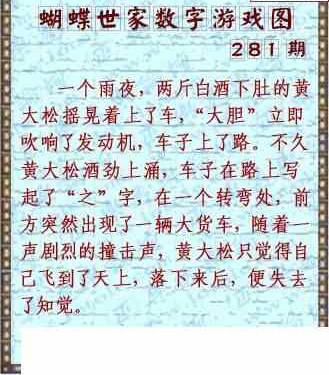 蝴蝶世家数字游戏图
281期
一个雨夜，两斤白酒下肚的黄
大松摇晃着上了车，“大胆”立即
吹响了发动机，车子上了路。不久
黄大松酒劲上涌，车子在路上写
起了“之”字，在一个转弯处，前
方突然出现了一辆大货车，随着一
声剧烈的撞击声，黄大松只觉得自
己飞到了天上，落下来后，便失去
了知觉。